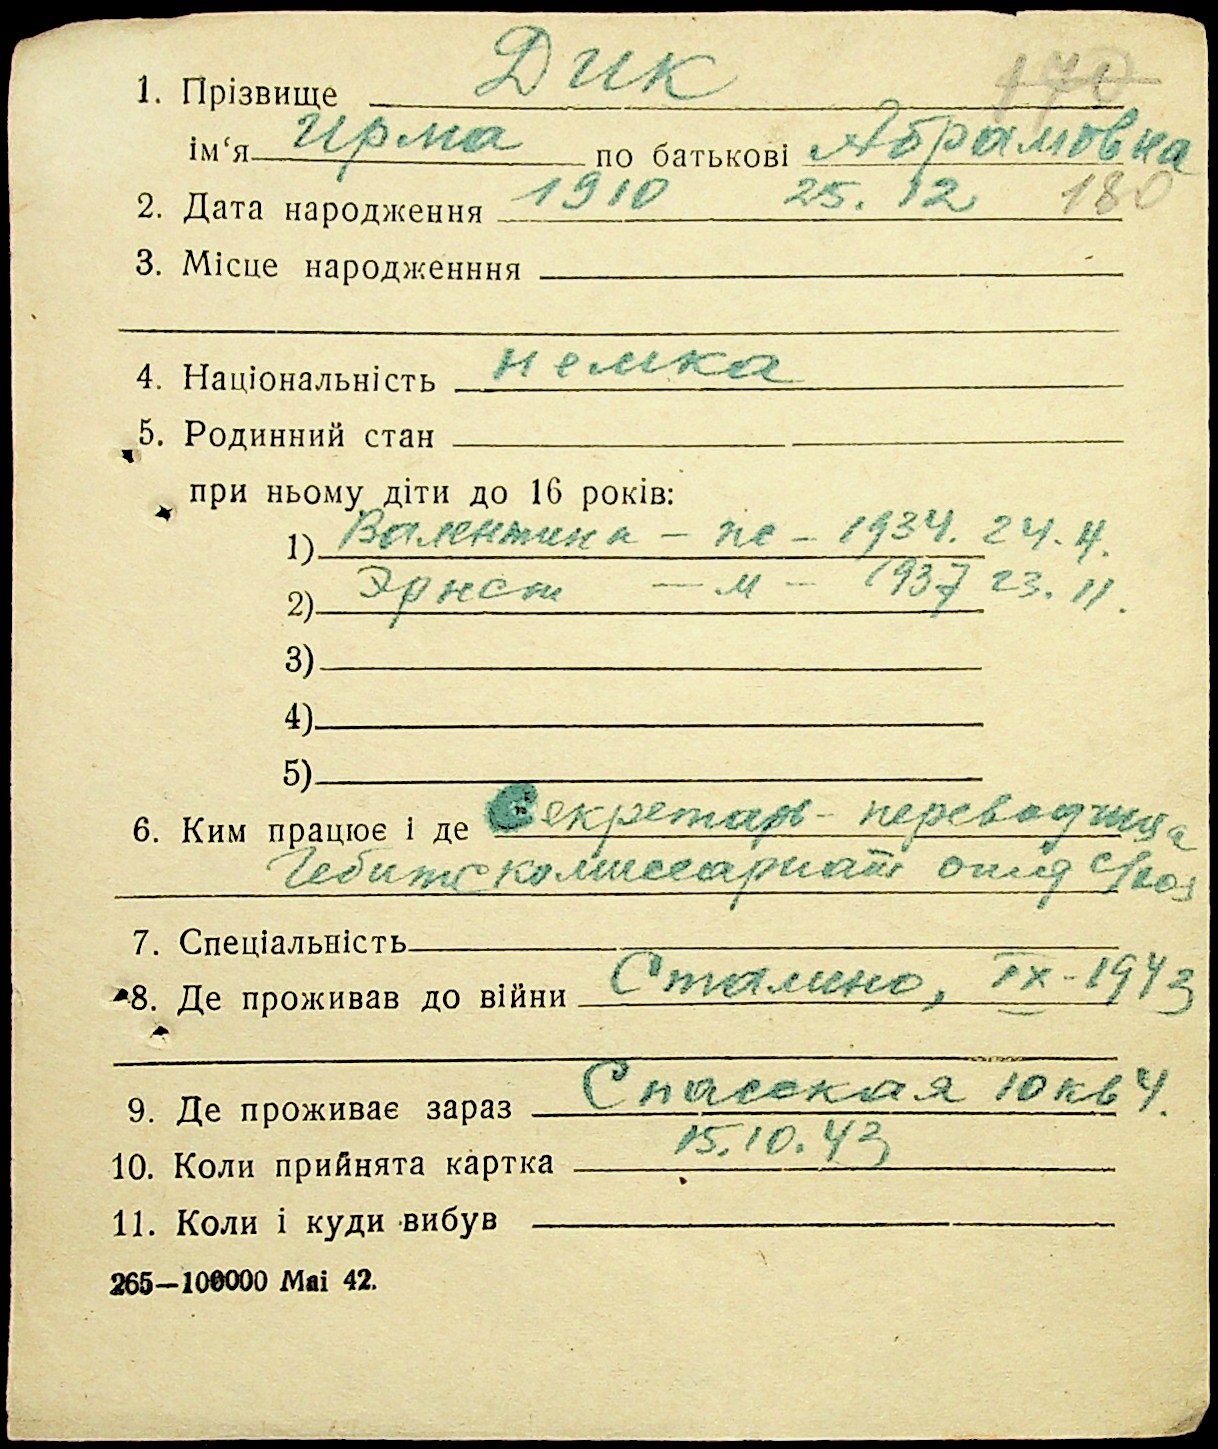 1. Прізвище Дик 170
ім‘я Ирма по батькові Абрамовна
2. Дата народження 1910 25. 12 180
3. Місце народженння
4. Національність немка
5. Родинний стан
при ньому діти до 16 років:
1) Валентина – же – 1934. 24. 4.
2) Эрнст – м – 1937 23. 11.
3)
4)
5)
6. Ким працює і де Секретарь - переводчица
Гебитскомиссариат
7. Спеціальність
8. Де проживав до війни Сталино, IX - 1943
9. Де проживає зараз Спасская 10 кв 4.
10. Коли прийнята картка 15. 10. 43
11. Коли і куди вибув
265—100000 Маі 42.